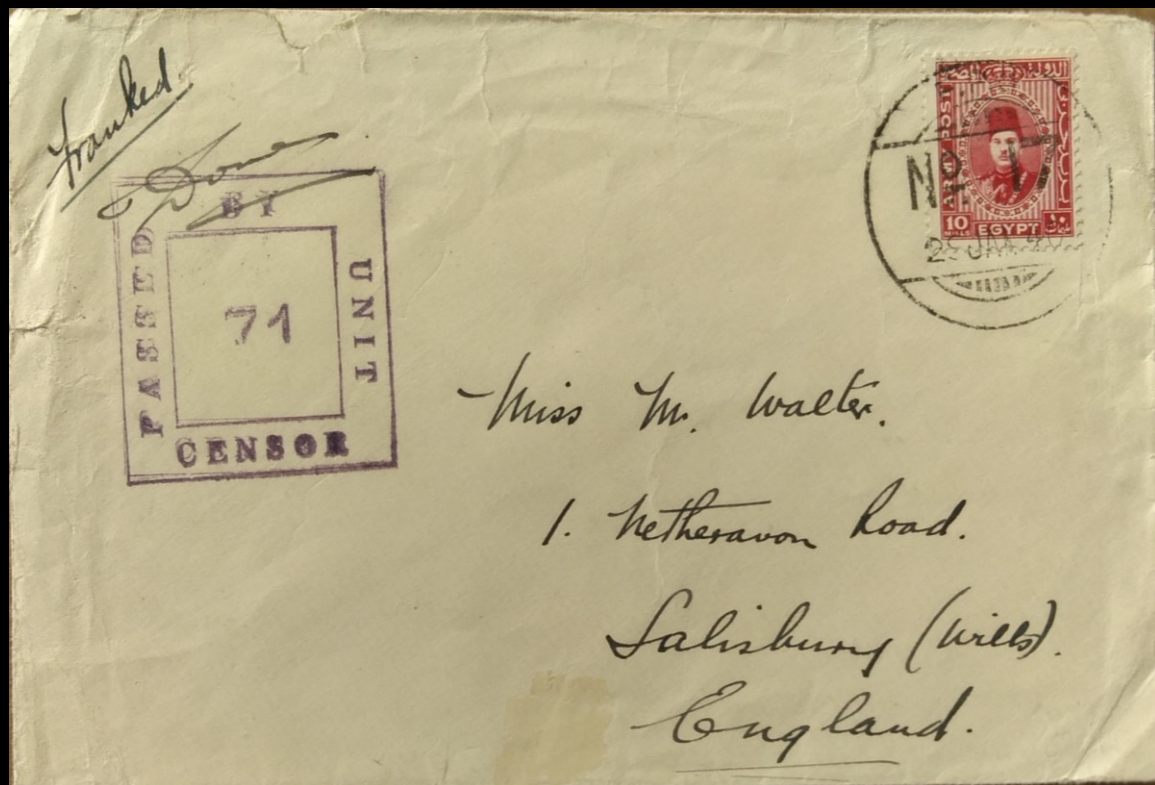 Franked
PASSED
BY
UNIT
CENSOR
71
ARMY POST
No. 17
10
MILLS
EGYPT
JAN
Miss M. Walter.
1. Netheravon Road.
Salisbury (Wilts).
England.